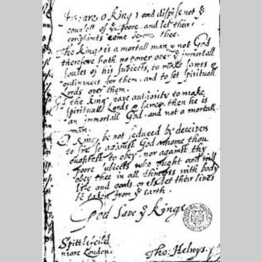 Heare o King, and dispise not ye
counsell of ye poore, and let their
complaints come before thee.
The King is a mortall man, & not God
therefore hath no power over ye immortall
soules of his subiects, to make lawes &
ordinances for them, and to set spirituall
Lords over them.
If the King have authority to make
spirituall Lords & lawes, then he is
an immortall God, and not a mortall
man.
O King be not seduced by deceivers
to sinne against God whome thou
oughtest to obey, nor against thy
poore subiects who ought and will
obey thee in all thinges with body
life and goods or els let their lives
be taken from ye earth.
God Save ye King
Spittlefeild
neare London.
Tho: Helwys.